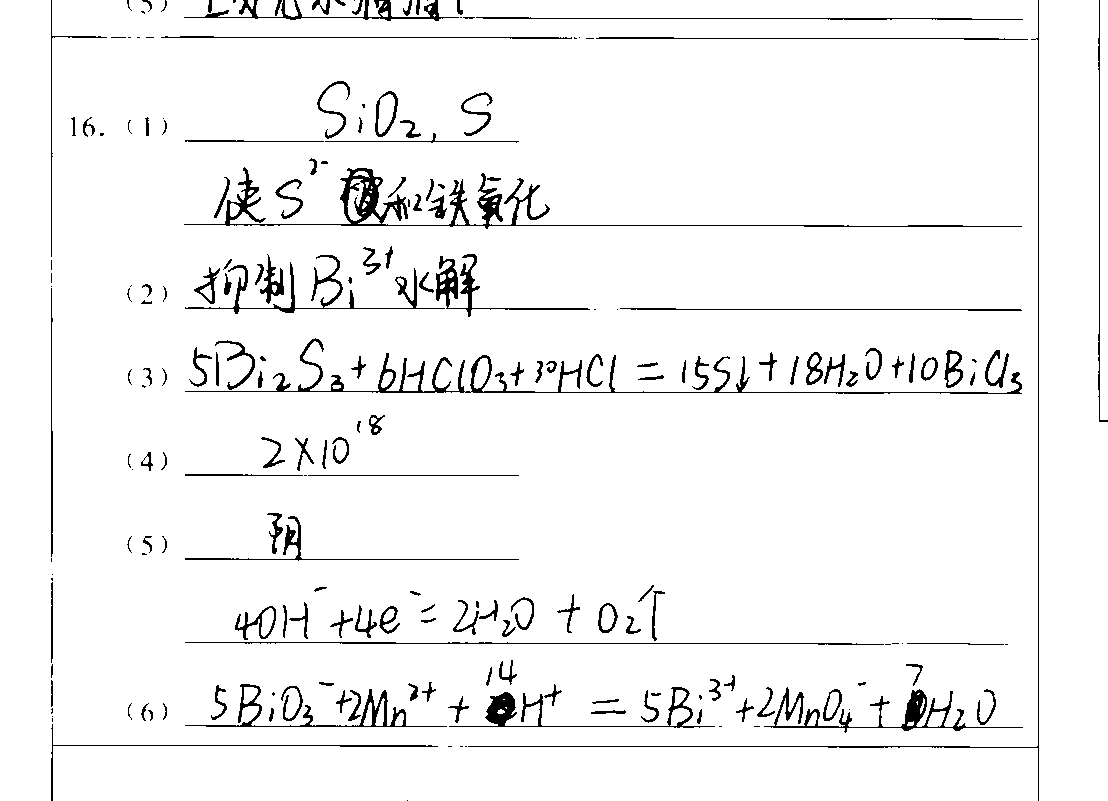 (5)
16. (1) SiO₂, S
使S²⁻和铁氧化
(2) 抑制Bi³⁺水解
(3) 5Bi₂S₃+6HClO₃+30HCl=15S↓+18H₂O+10BiCl₃
(4) 2×10¹⁸
(5) 阴
4OH⁻+4e⁻=2H₂O+O₂↑
(6) 5BiO₃⁻+2Mn²⁺+14H⁺=5Bi³⁺+2MnO₄⁻+7H₂O